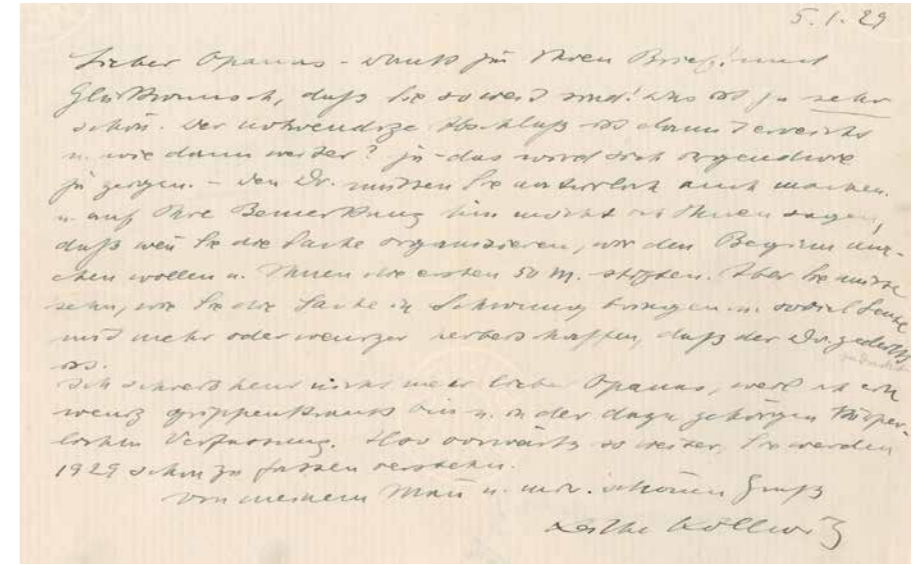 5.1.29
Lieber Opanas - Dank für Ihren Brief! und
Glückwunsch, daß Sie soweit sind! Das ist ja sehr
schön. Der notwendige Abschluß ist damit erreicht
u. wie dann weiter? ja - das wird sich irgendwie
ja zeigen. - Den Dr. müssen Sie natürlich auch machen.
u. auf Ihre Bemerkung hin möcht ich Ihnen sagen,
daß wen Sie die Sache organisieren, wir den Beginn ma-
chen wollen u. Ihnen die ersten 50 M. stiften. Aber Sie müssen
sehn, wie Sie die Sache in Schwung bringen u. soviel Leute
mit mehr oder weniger herbeischaffen, daß der Dr. gedeckt
ist.
Ich schreib heut nicht mehr lieber Opanas, weil ich ein
wenig grippenkrank bin u. in der dazu gehörigen körper-
lichen Verfassung. Also vorwärts so weiter, Sie werden
1929 schon zu fassen verstehn.
Von meinem Man u. mir schönen Gruß
Käthe Kollwitz